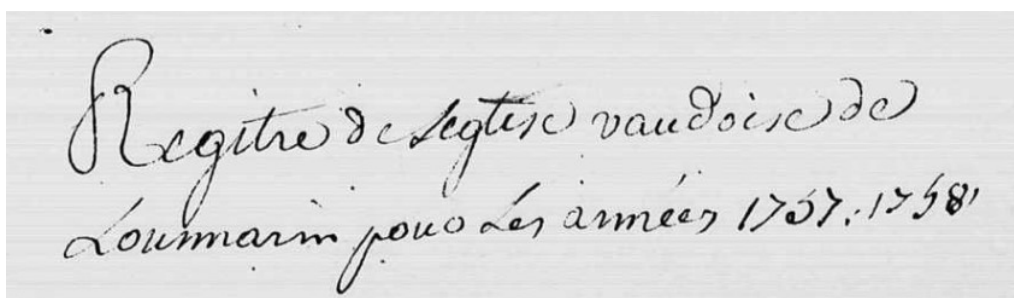 Regitre de Leglise vaudoise de
Lourmarin pour Les années 1757. 1758